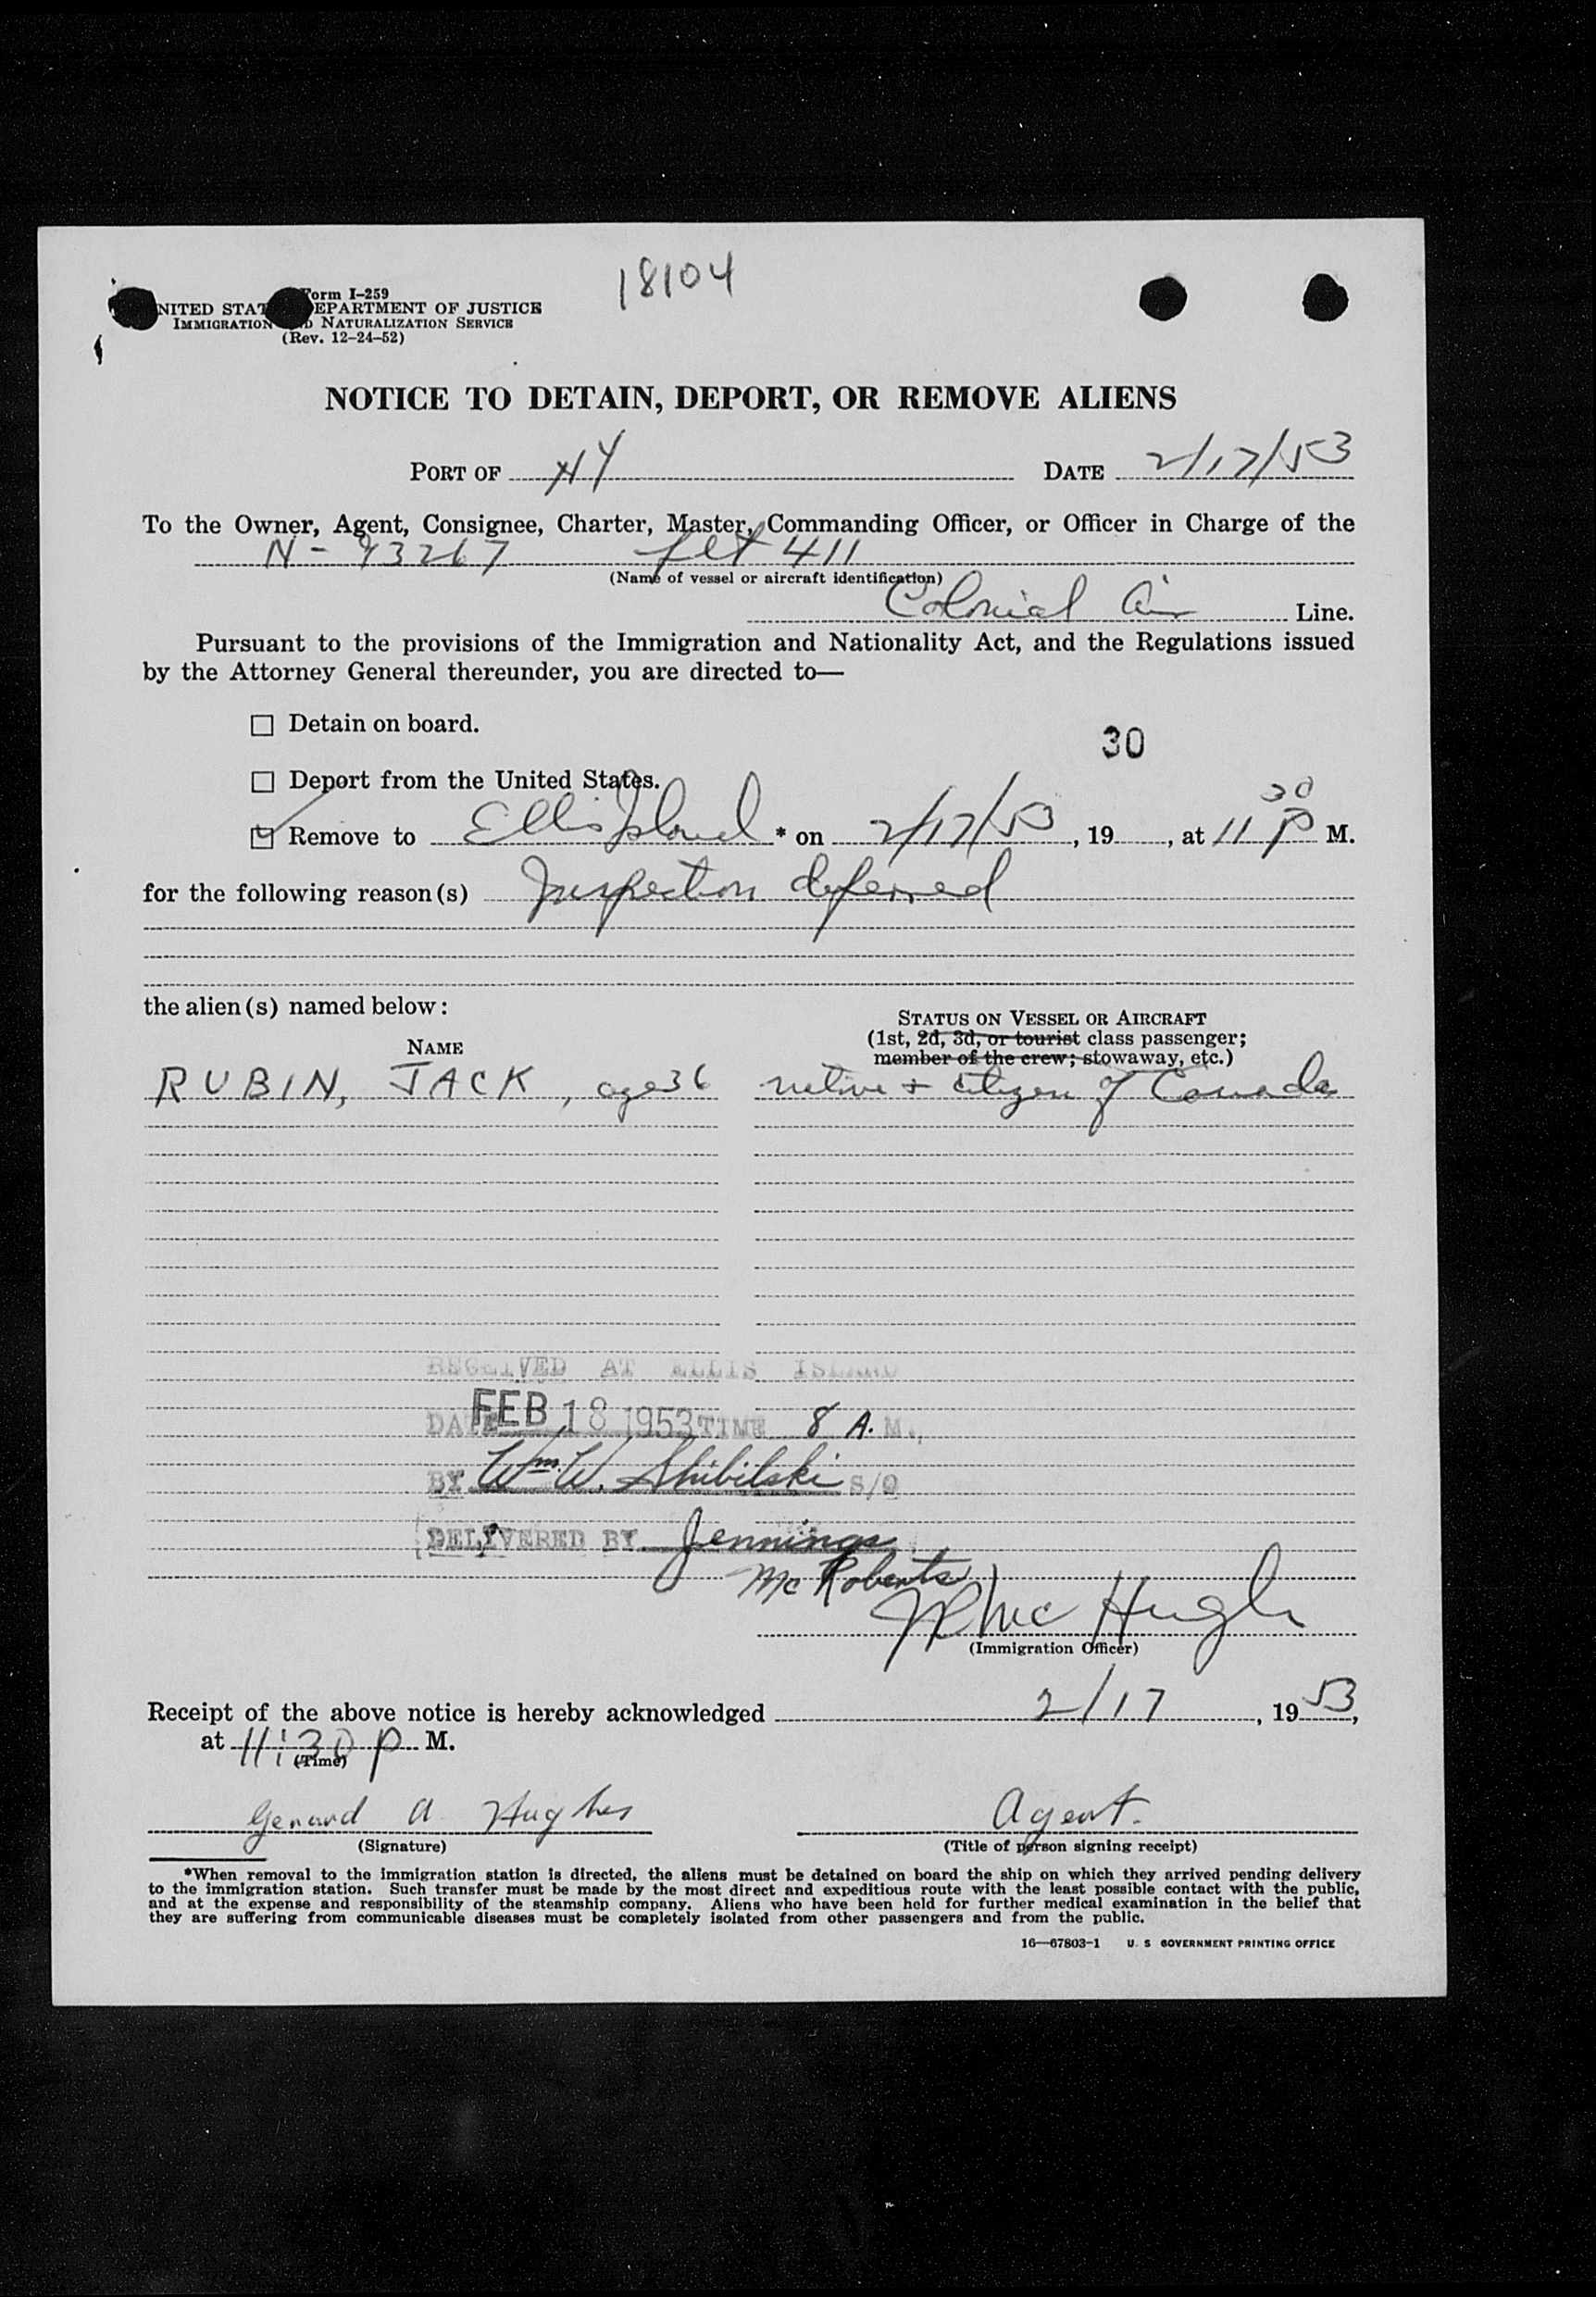 18104
Form I-259
UNITED STATES DEPARTMENT OF JUSTICE
IMMIGRATION AND NATURALIZATION SERVICE
(Rev. 12-24-52)
NOTICE TO DETAIN, DEPORT, OR REMOVE ALIENS
PORT OF NY DATE 2/17/53
To the Owner, Agent, Consignee, Charter, Master, Commanding Officer, or Officer in Charge of the
N-93267 flt 411
(Name of vessel or aircraft identification)
Colonial Air Line.
Pursuant to the provisions of the Immigration and Nationality Act, and the Regulations issued
by the Attorney General thereunder, you are directed to—
☐ Detain on board.
30
☐ Deport from the United States.
☑ Remove to Ellis Island * on 2/17/53, 19, at 11 30 P M.
for the following reason(s) Inspection deferred
the alien(s) named below:
STATUS ON VESSEL OR AIRCRAFT
(1st, 2d, 3d, or tourist class passenger;
member of the crew; stowaway, etc.)
NAME
RUBIN, JACK, age 36 native + citizen of Canada
RECEIVED AT ELLIS ISLAND
DATE FEB 18 1953 TIME 8 A.M.,
BY Wm. W. Shibilski S/O
DELIVERED BY Jennings
McRoberts
JP McHugh
(Immigration Officer)
Receipt of the above notice is hereby acknowledged 2/17, 1953,
at 11:30 P M.
(Time)
Gerard A Hughes Agent.
(Signature) (Title of person signing receipt)
*When removal to the immigration station is directed, the aliens must be detained on board the ship on which they arrived pending delivery
to the immigration station. Such transfer must be made by the most direct and expeditious route with the least possible contact with the public,
and at the expense and responsibility of the steamship company. Aliens who have been held for further medical examination in the belief that
they are suffering from communicable diseases must be completely isolated from other passengers and from the public.
16—67803-1 U. S. GOVERNMENT PRINTING OFFICE